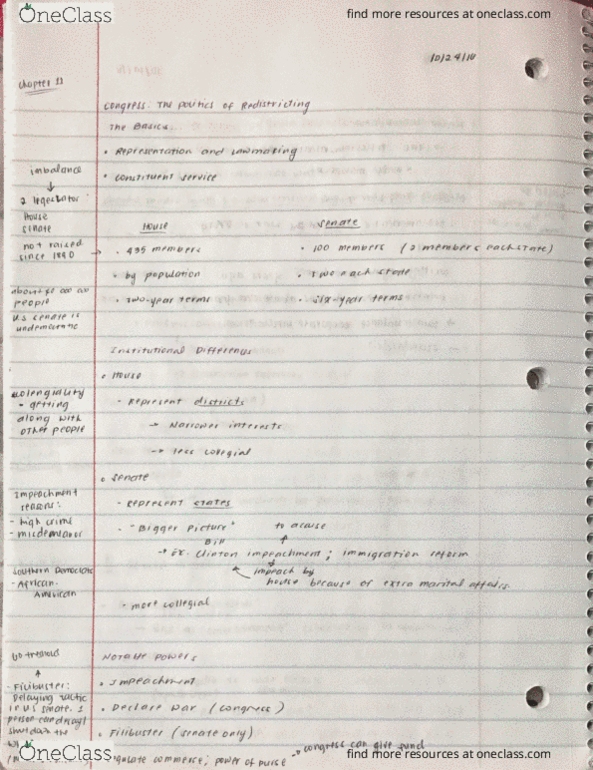 OneClass
find more resources at oneclass.com
10/24/18
Chapter 11
Congress: The Politics of Redistricting
The Basics:
• Representation and lawmaking
• Constituent service
imbalance
↓
2 legislator
House
Senate
House
Senate
not raised
since 1890 →
• 435 members
• 100 members (2 members each state)
• by population
• Two each state
people
• Two-year terms
• Six-year terms
U.S senate is
undemocratic
Institutional Differences
• House
- getting
along with
other people
- Represent districts
→ Narrower interests
→ less collegial
• Senate
Impeachment
reasons:
- high crime
- misdemeanor
- Represent states
- "Bigger Picture"
to accuse
→ Ex. Clinton impeachment; immigration reform
impeach by
house because of extra marital affairs
Southern Democrats
- African-
American
- more collegial
Notable Powers
↑
- Filibuster:
Delaying tactic
in U.S senate. 1
person can delay/
shut down the
• Impeachment
• Declare War (congress)
• Filibuster (senate only)
→ congress can give fund
regulate commerce; power of purse
OneClass
find more resources at oneclass.com